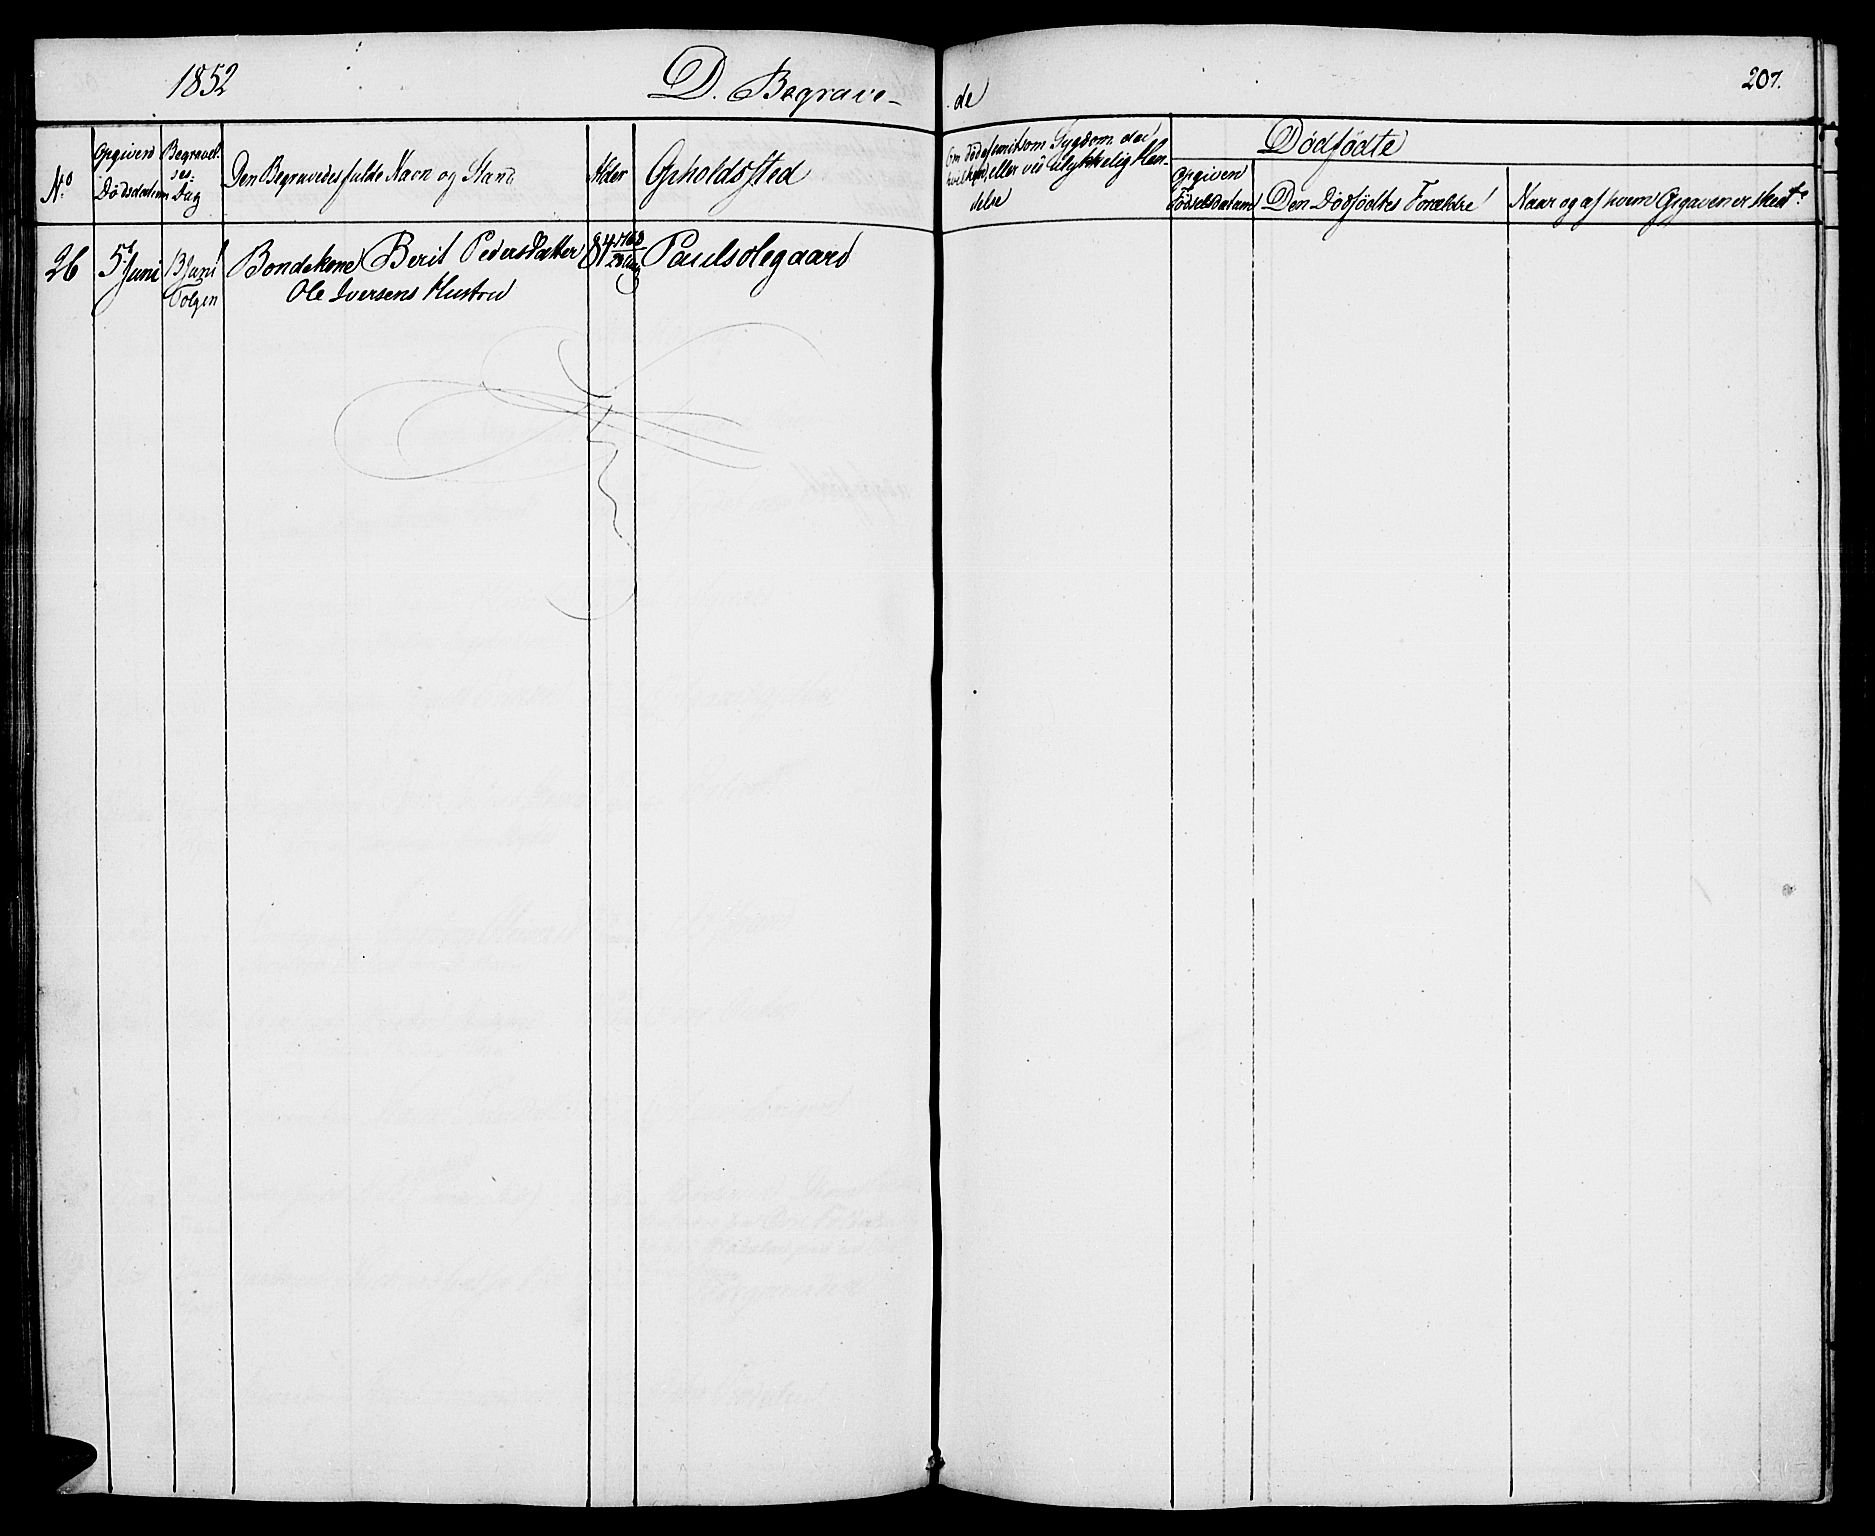 1852
D. Begrave-
de
207.
No
Opgiven Dødsdatum
Begravel-
ses
Dag
Den Begravedes fulde Navn og Stand
Alder
Opholdssted
Om Dødsfaldet som Sygdom,
eller ved ulykkelig Hæn-
delse
Dødfødte
Opgiven
Fødselsdatum
Den Dødfødtes Forældre
Naar og af hvem Opgaven er skeet?
26
5 Juni
13 Juni
Tolgen
Bondekone Berit Pedersdatter
Ole Iversens Hustru
84
Paulsølegaard